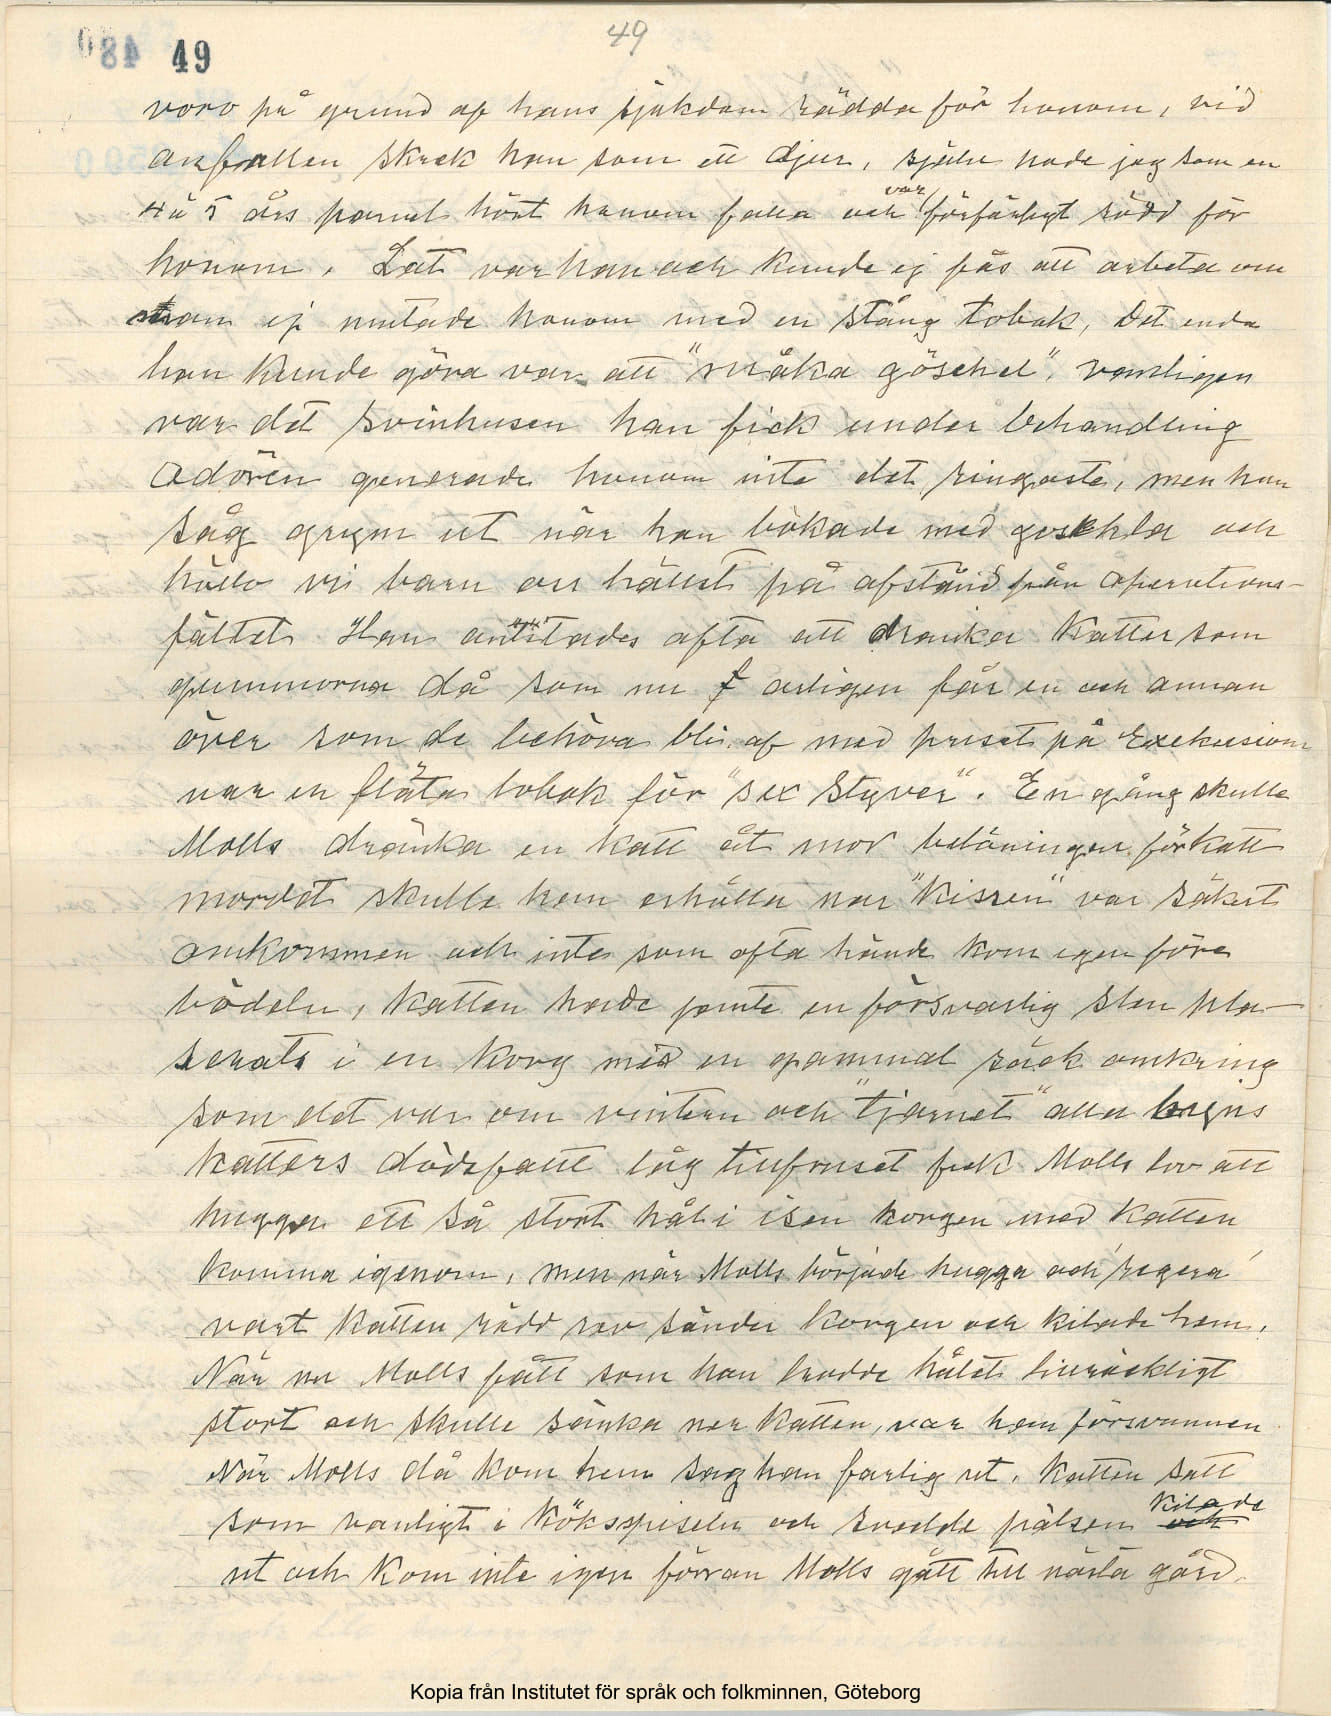 49
49
voro på grund af hans sjukdom rädda för honom, vid
anfallen skrek han som ett djur, själv hade jag som en
4 à 5 års parvel hört honom falla och var förfärligt rädd för
honom. Lat var han och kunde ej fås att arbeta om
man ej mutade honom med en stång tobak, Det enda
han kunde göra var att "måka göschel", vanligen
var det svinhusen han fick under behandling
Odören generade honom inte det ringaste, men han
såg grym ut när han bökade med och
höllo vi barn oss hälst på afstånd från operations-
fältet Han ofta att dränka Katter som
gummorna då som nu f årligen får en och annan
över som de behöva bli af med priset på Exekusionen
var en fläta tobak för "sex Styver". En gång skulle
Molls dränka en katt åt mor belöningen för katt
mordet skulle han erhålla när "Kissen" var säkert
omkommen och inte som ofta hände kom igen före
bödeln, Katten hade jemte en försvarlig sten pla-
serats i en korg med en gammal säck omkring
som det var om vintern och "tjärnet" alla byns
katters dödsfälle låg tillfruset fick Molls lov att
hugga ett så stort hål i isen korgen med katten
komma igenom, men när Molls började hugga och 'regera'
vart katten rädd rev sönder korgen och kilade hem.
När nu Molls fått som han trodde hålet tillräckligt
stort och skulle sänka ner katten, var han försvunnen
När Molls då kom hem såg han farlig ut. Katten satt
som vanligt i köksspiseln och svedde pälsen kilade och
ut och kom inte igen förran Molls gått till nästa gård.
Kopia från Institutet för språk och folkminnen, Göteborg